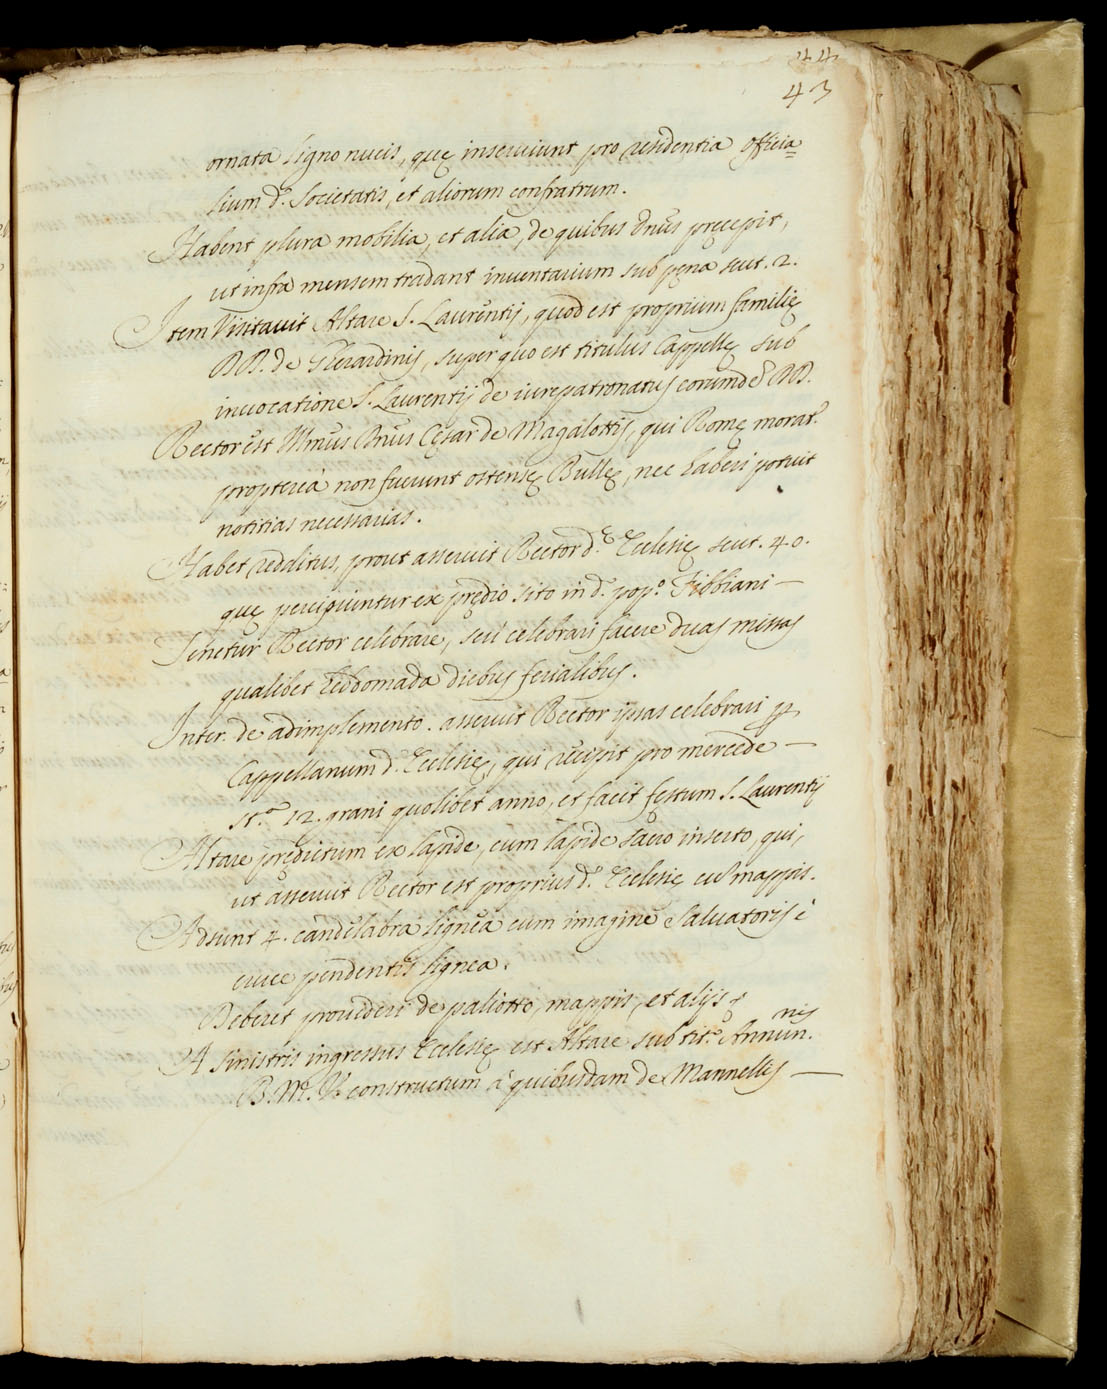 44
43
ornata ligno nucis, quę inserviunt pro residentia officia=
lium d.ę Societatis, et aliorum confratrum.
Habent plura mobilia, et alia, de quibus Dnũs pręcepit,
ut infra mensem tradant inventarium sub pęna scut. 2.
Item Visitavit Altare S. Laurentij, quod est proprium familię
DD. de Gherardinis, super quo est titulus Cappellę sub
invocatione S. Laurentij de iurepatronatus eorumdẽ DD.
Rector est Illmũs Dnũs Cęsar de Magalottis, qui Romę morat.r
propterea non fuerunt ostensę Bullę, nec haberi potuit
notitias necessarias.
Habet redditus, prout asseruit Rector d.ę Ecclesię scut. 40.
quę percipiuntur ex prędio sito in d.o pop.o Fibbiani —
Tenetur Rector celebrare, seu celebrari facere duas missas
qualibet hebdomada diebus ferialibus.
Inter. de adimplemento. asseruit Rector ipsas celebrari ꝑ
Cappellanum d.ę Ecclesię, qui recipit pro mercede —
st.a 12. grani quolibet anno, et facit fęstum S. Laurentij
Altare prędictum ex lapide, cum lapide sacro inserto, qui,
ut asseruit Rector est proprius d.ę Ecclesię cũ mappis.
Adsunt 4. candelabra lignea cum imagine Salvatoris è
cruce pendentis lignea.
Deberet provideri de paliotto, mappis, et alijs
A sinistris ingressus Ecclesię est Altare sub tit.o Annun.
nis
B. M. V. constructum à quibusdam de Mannellis —